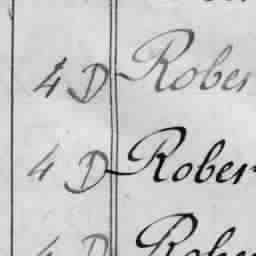 4 D Rober
4 D Rober
4 D Rober